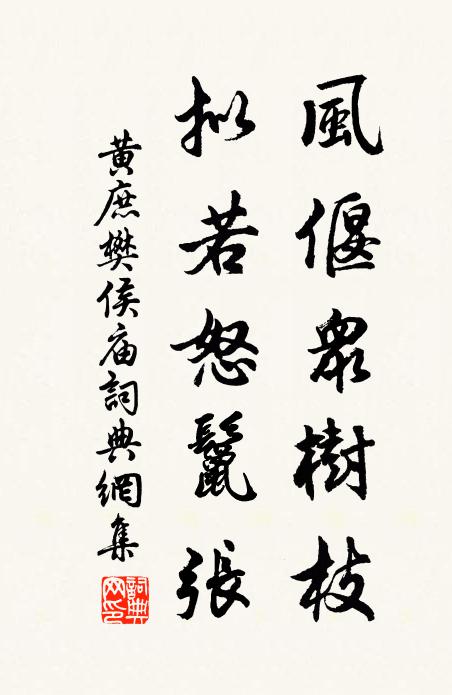 風偃眾樹枝
拟若怒鬣張
黄庶樊侯庙詞典網集
詞典网印